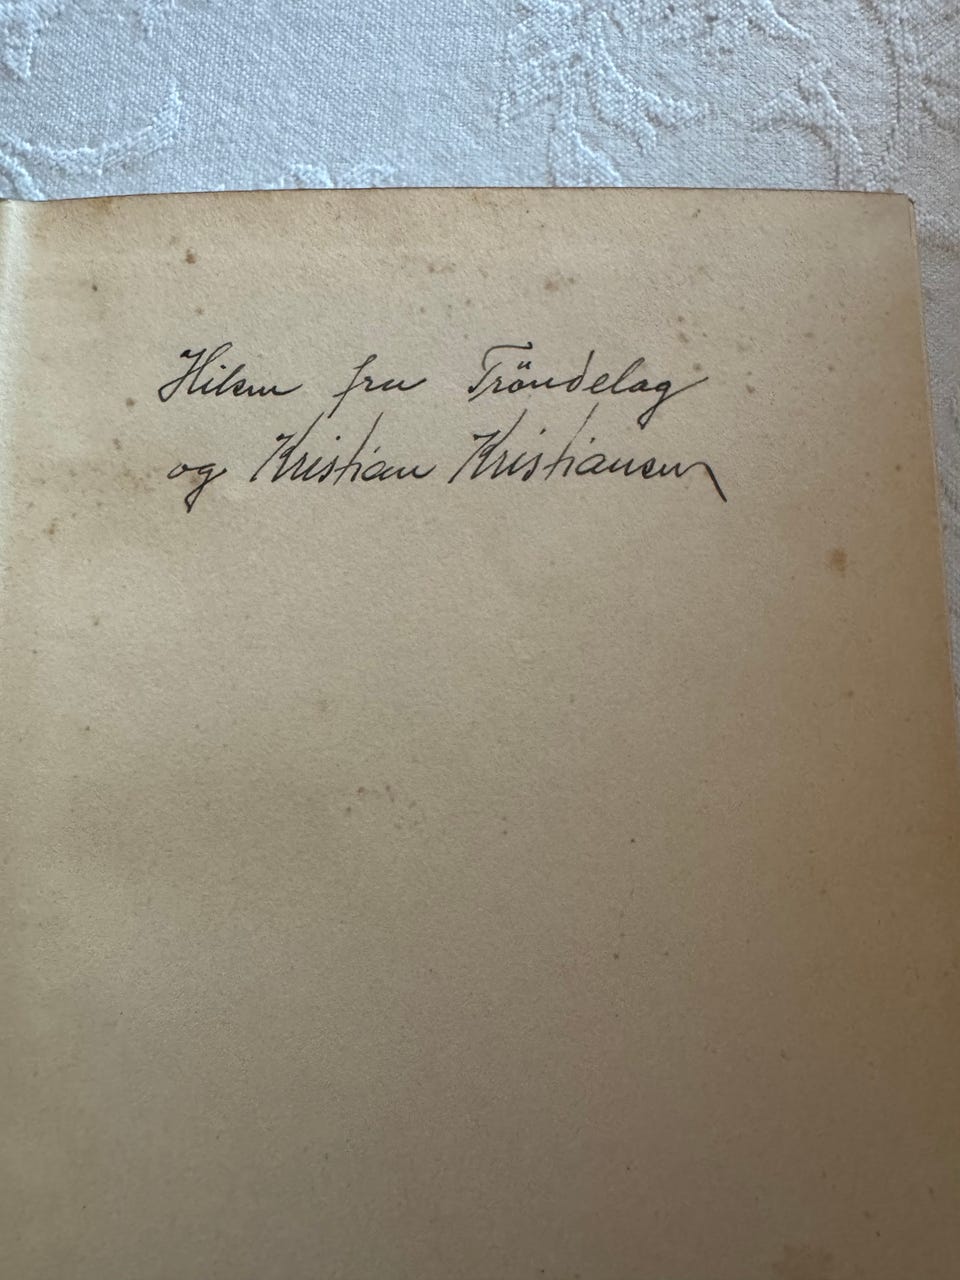 Hilsen fra Tröndelag
og Kristian Kristiansen